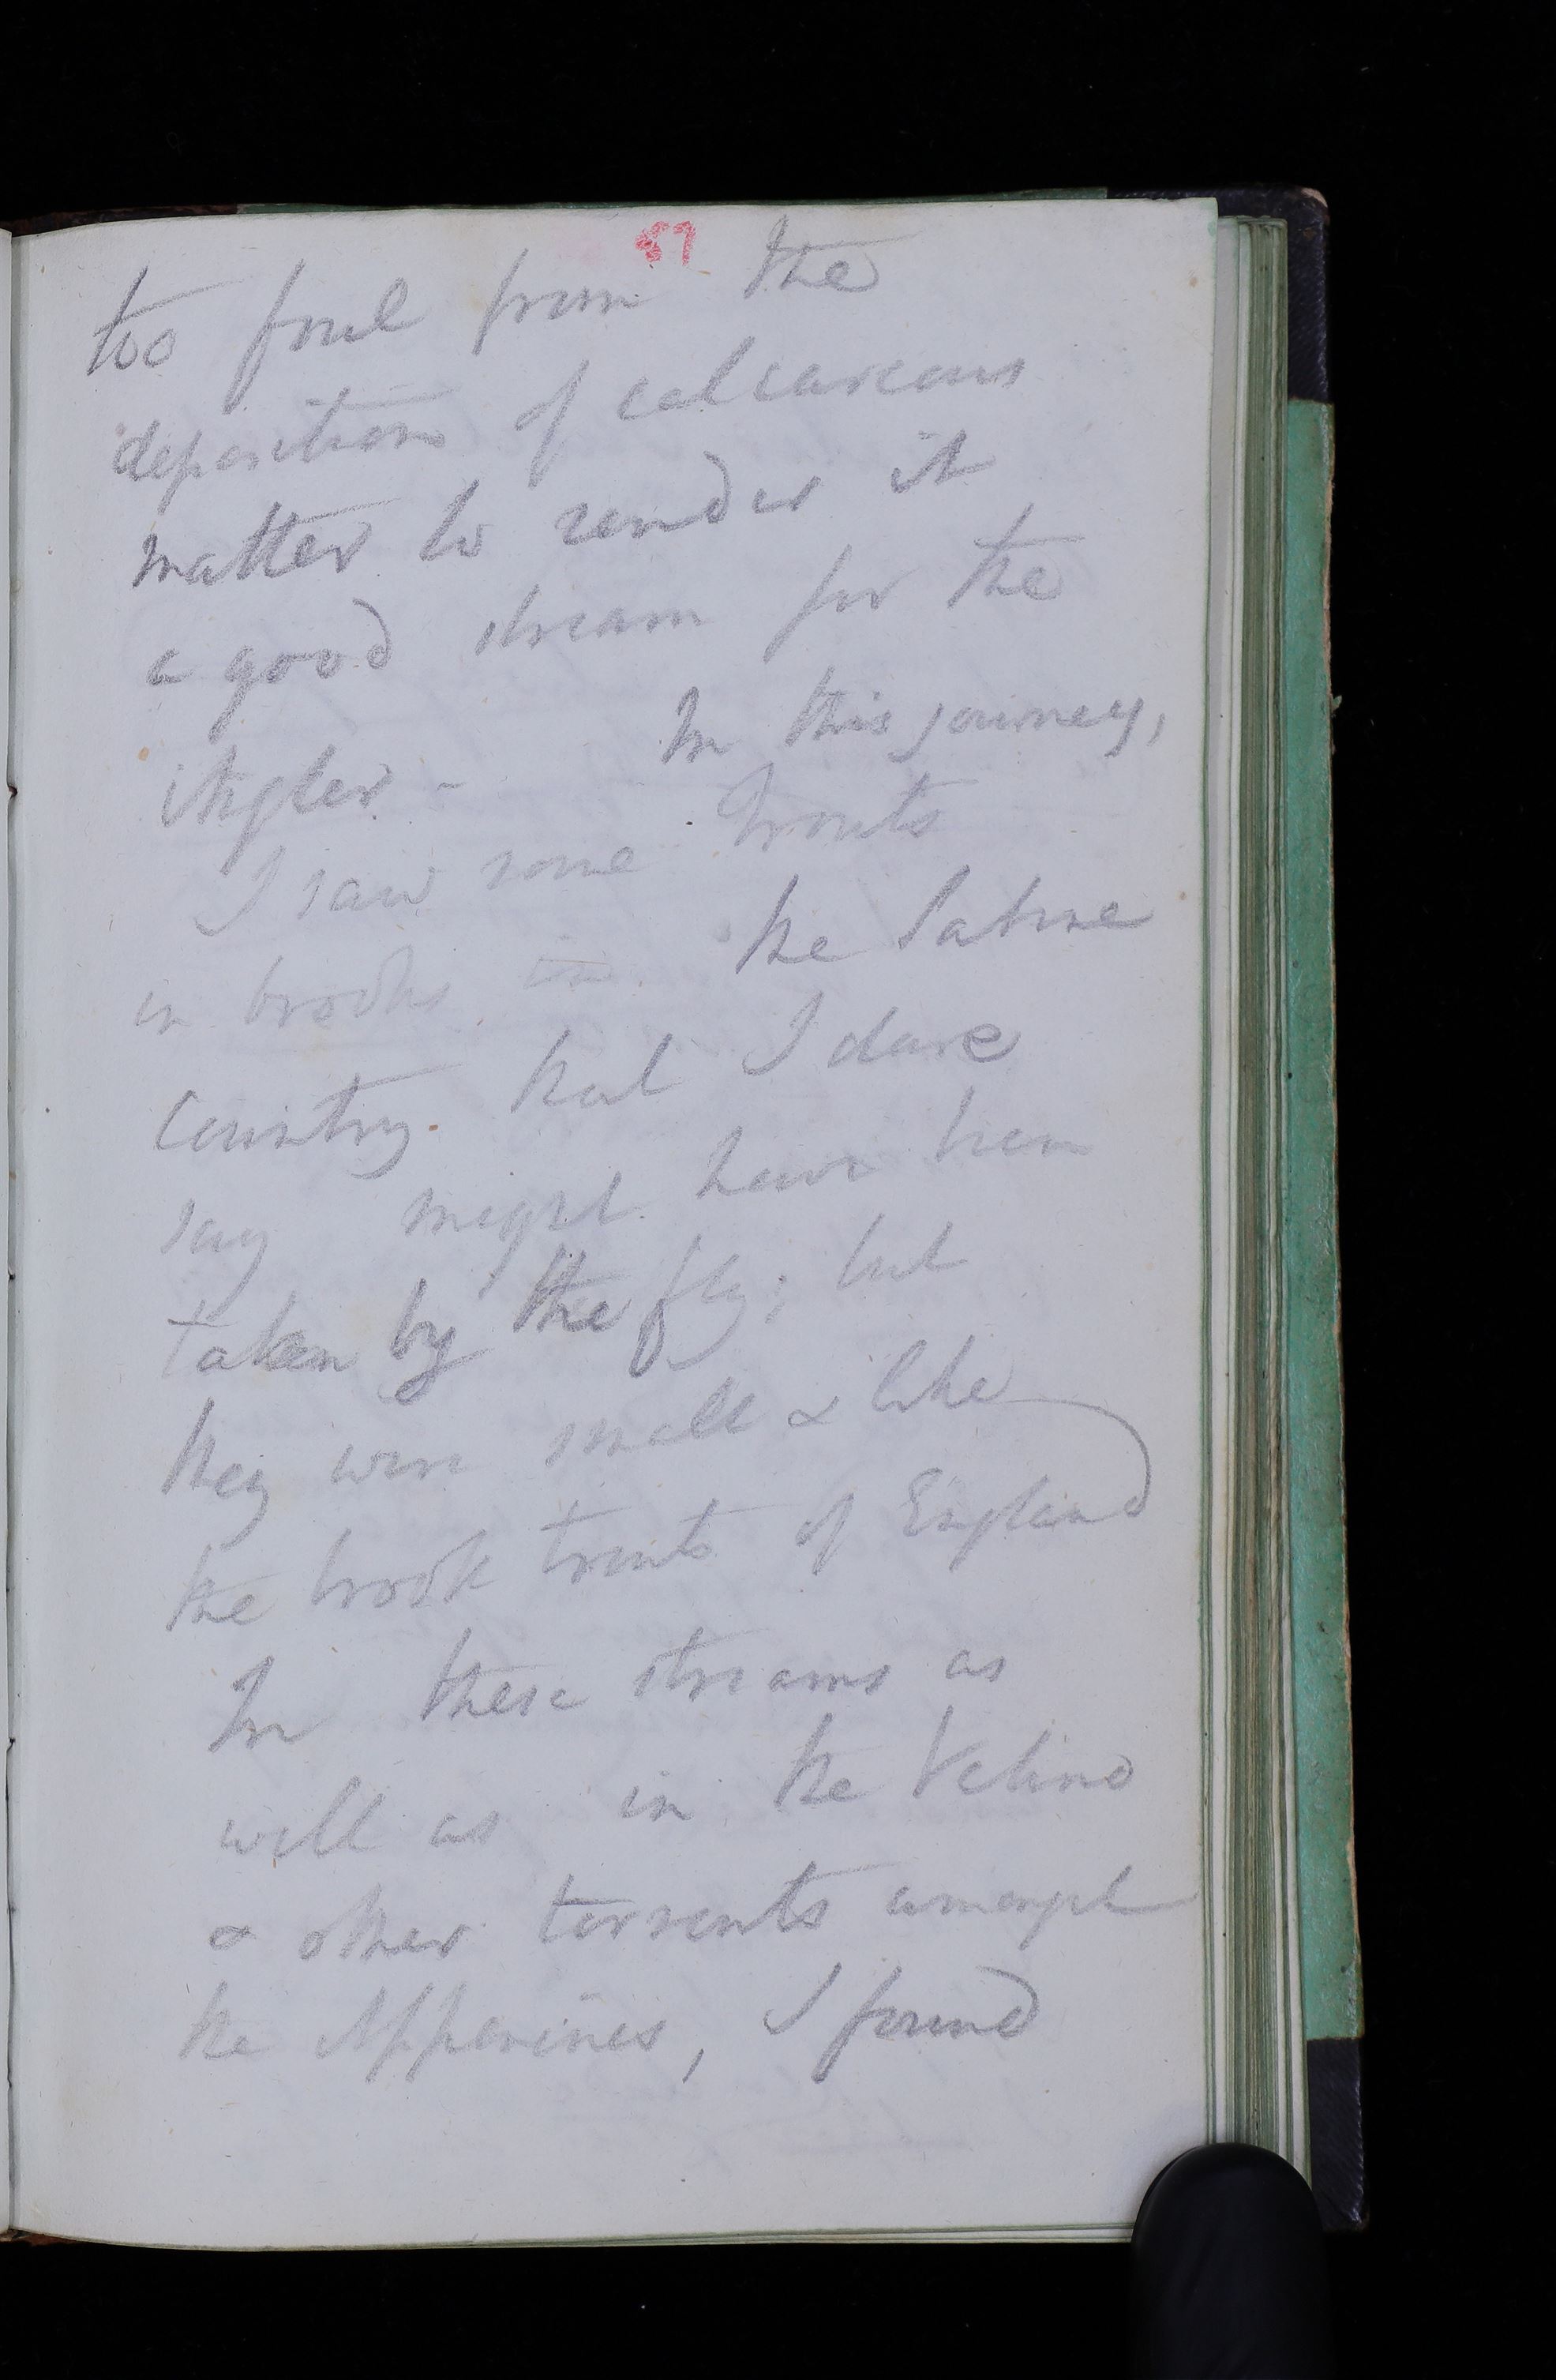 57
too foul from the
deposition of calcareous
matter to render it
a good stream for the
Angler - In this journey,
I saw some Trouts
in brooks in the Sabine
Country that I dare
say might have been
taken by the fly; but
they were small & like
the brook trouts of England
In these streams as
well as in the Velino
& other torrents amongst
the Appenines, I found